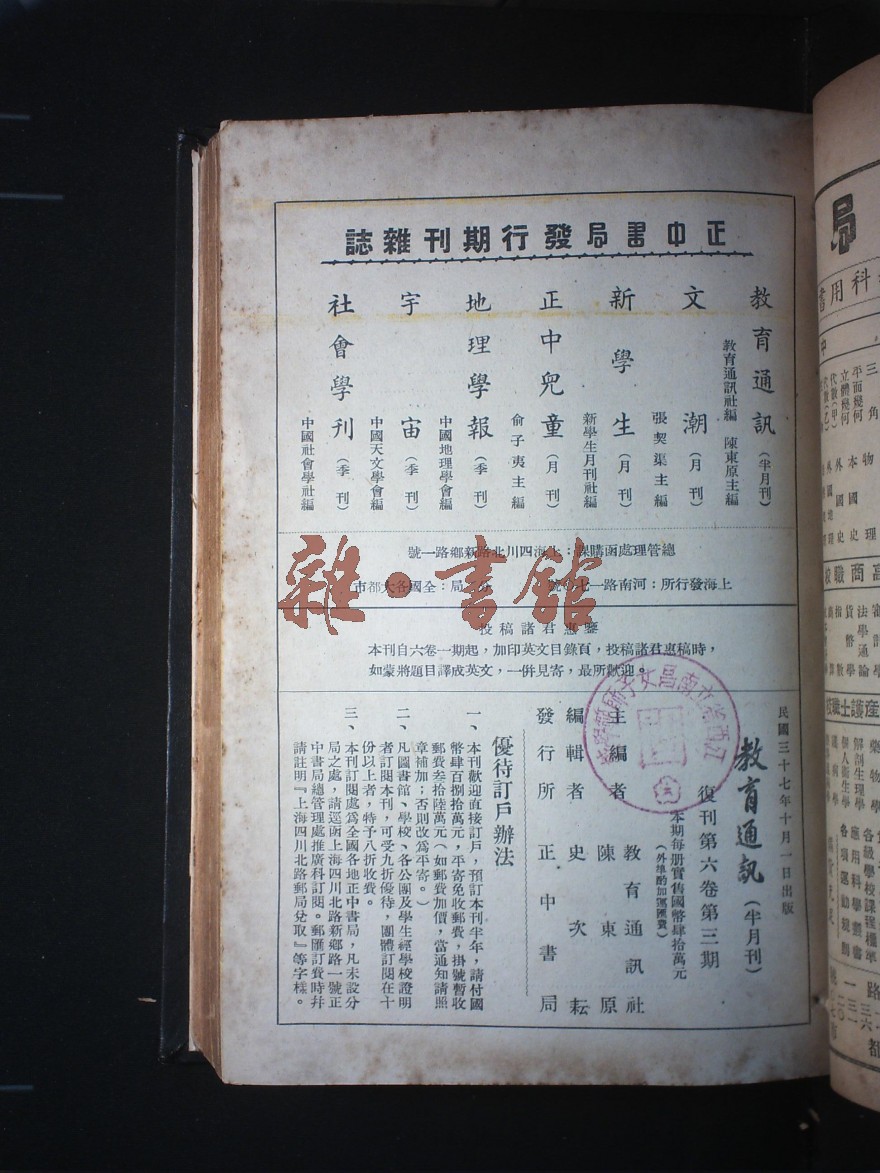 正中書局發行期刊雜誌
教育通訊(半月刊)
教育通訊社編 陳東原主編
文潮(月刊)
張契渠主編
新學生(月刊)
新學生月刊社編
正中兒童(月刊)
俞子夷主編
地理學報(季刊)
中國地理學會編
宇宙(季刊)
中國天文學會編
社會學刊(季刊)
中國社會學社編
總管理處函購課:上海四川北路新鄉路一號
上海發行所:河南路一七〇號 分局:全國各大都市
投稿諸君惠鑒
本刊自六卷一期起,加印英文目錄頁,投稿諸君惠稿時,
如蒙將題目譯成英文,一併見寄,最所歡迎。
民國三十七年十月一日出版
教育通訊(半月刊)
復刊第六卷第三期
本期每册實售國幣肆拾萬元
(外埠酌加運匯費)
教育通訊社
主編者 陳東原
編輯者 史次耘
發行所 正中書局
優待訂戶辦法
一、本刊歡迎直接訂戶,預訂本刊半年,請付國
幣肆百捌拾萬元,平寄免收郵費,掛號暫收
郵費叁拾陸萬元(如郵費加價,當通知請照
章補加;否則改爲平寄。)
二、凡圖書館、學校、各公團及學生經學校證明
者訂閱本刊,可受九折優待,團體訂閱在十
份以上者,特予八折收費。
三、本刊訂閱處爲全國各地正中書局,凡未設分
局之處,請逕函上海四川北路新鄉路一號正
中書局總管理處推廣科訂閱。郵匯訂費時幷
請註明『上海四川北路郵局兌取』等字樣。
雜·書館
局
科用書
三角
平面幾何
立體幾何
物理
本國史
外國史
高商職校
產護士職校